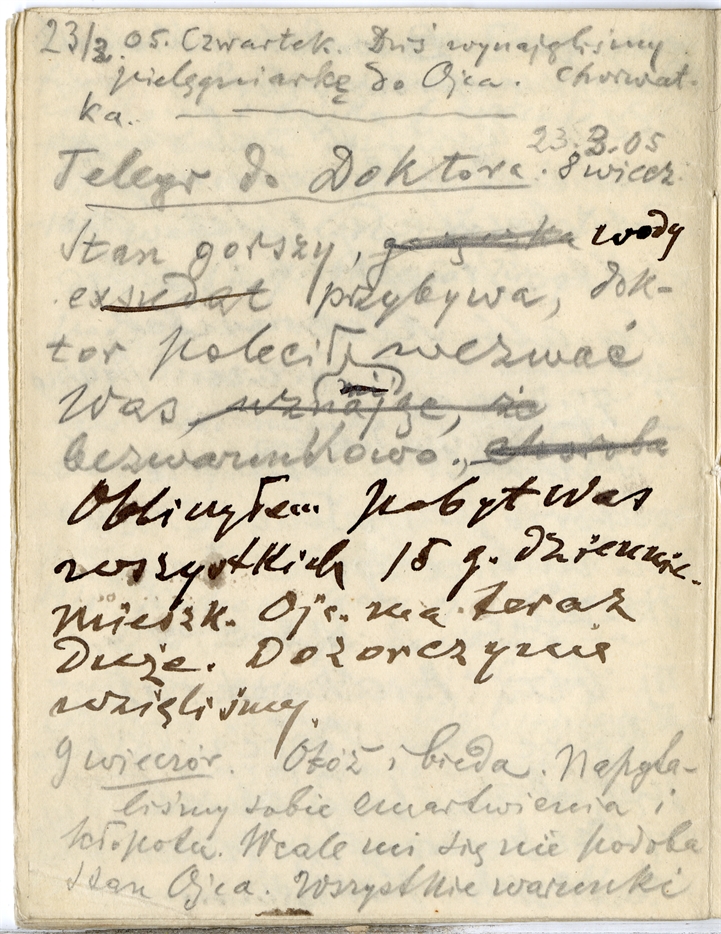 23/3 05. Czwartek. Dziś wynajęliśmy
pielęgniarkę do Ojca. Chorwat-
ka.
23.3.05
Telegr do Doktora. 8 wiecz.
Stan gorszy, wody
exsudat przybywa, dok-
tor polecił, wezwać
Was, uznając, że
bezwarunkowo., choroba
Obliczyłem pobyt Was
wszystkich 15 g. dziennie.
mieszk. Ojc. ma teraz
Duże. Dozorczynię
wzięliśmy.
9 wieczór. Otóż i bieda. Napyta-
liśmy sobie zmartwienia i
kłopotu. Wcale mi się nie podoba
stan Ojca. Wszystkie warunki